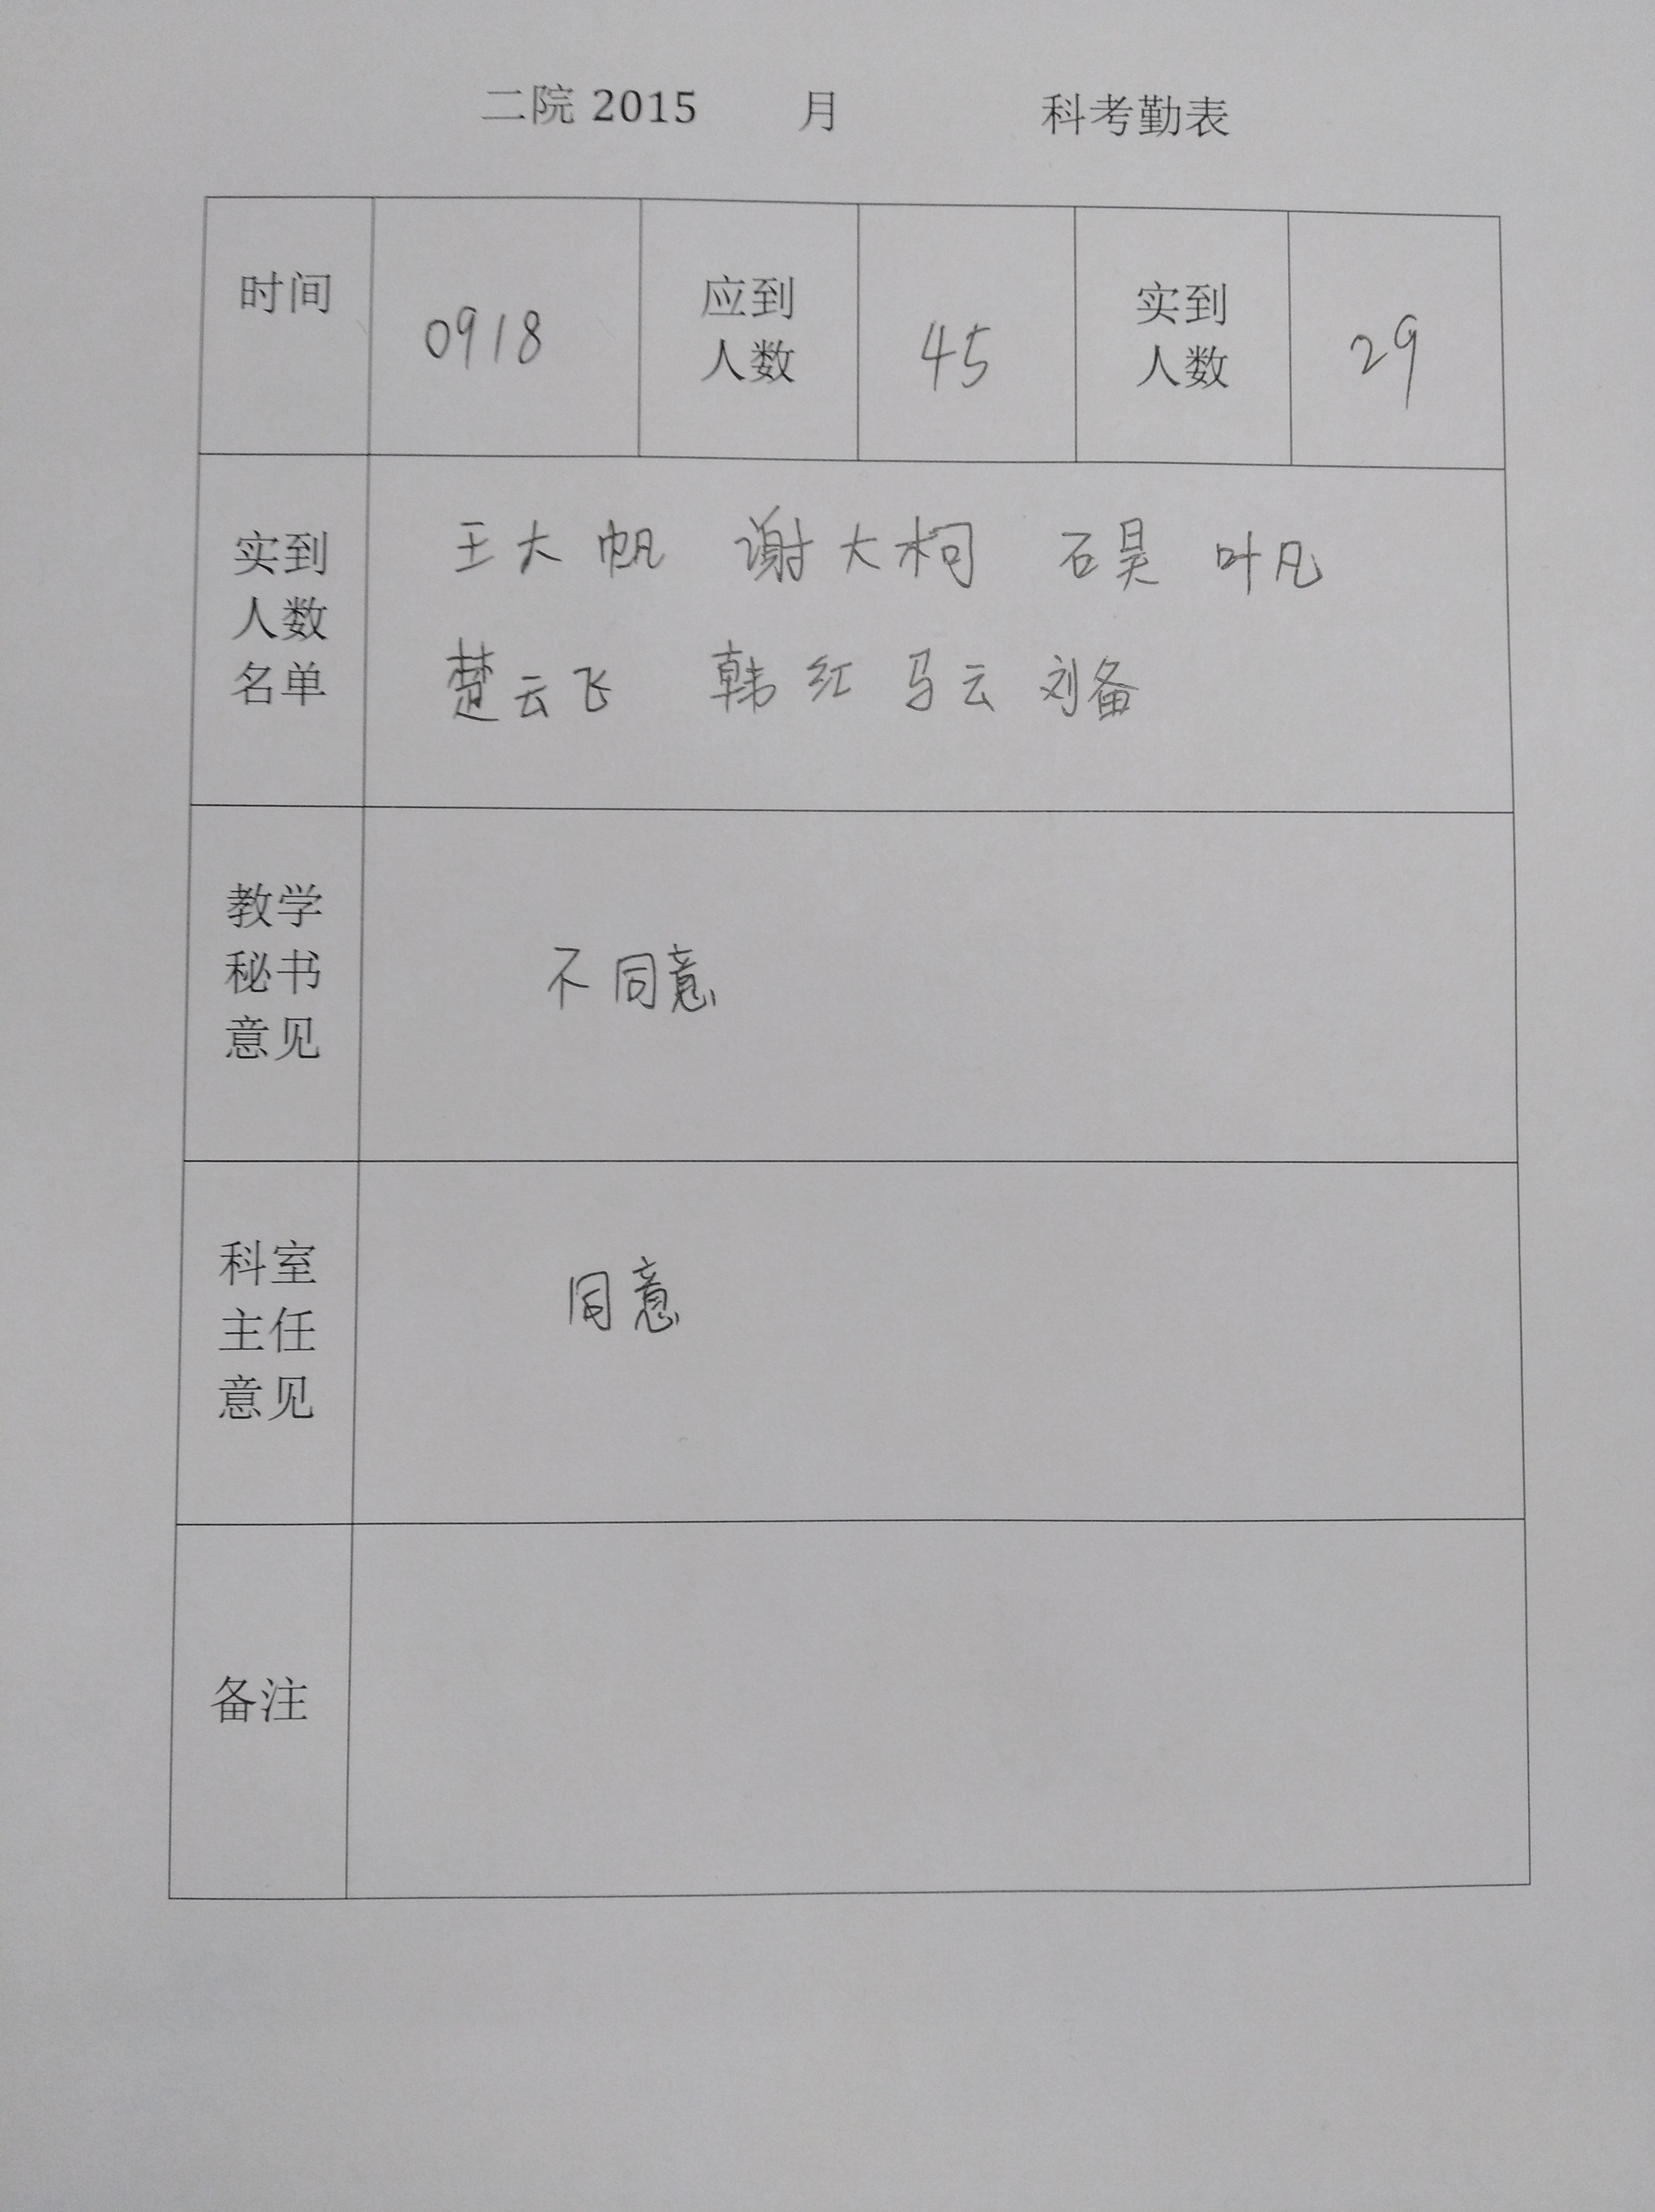 二院 2015 月 科考勤表
时间 0918 应到人数 45 实到人数 29
实到人数名单
王大帆 谢大柯 石昊 叶凡
楚云飞 韩红 马云 刘备
教学秘书意见
不同意
科室主任意见
同意
备注